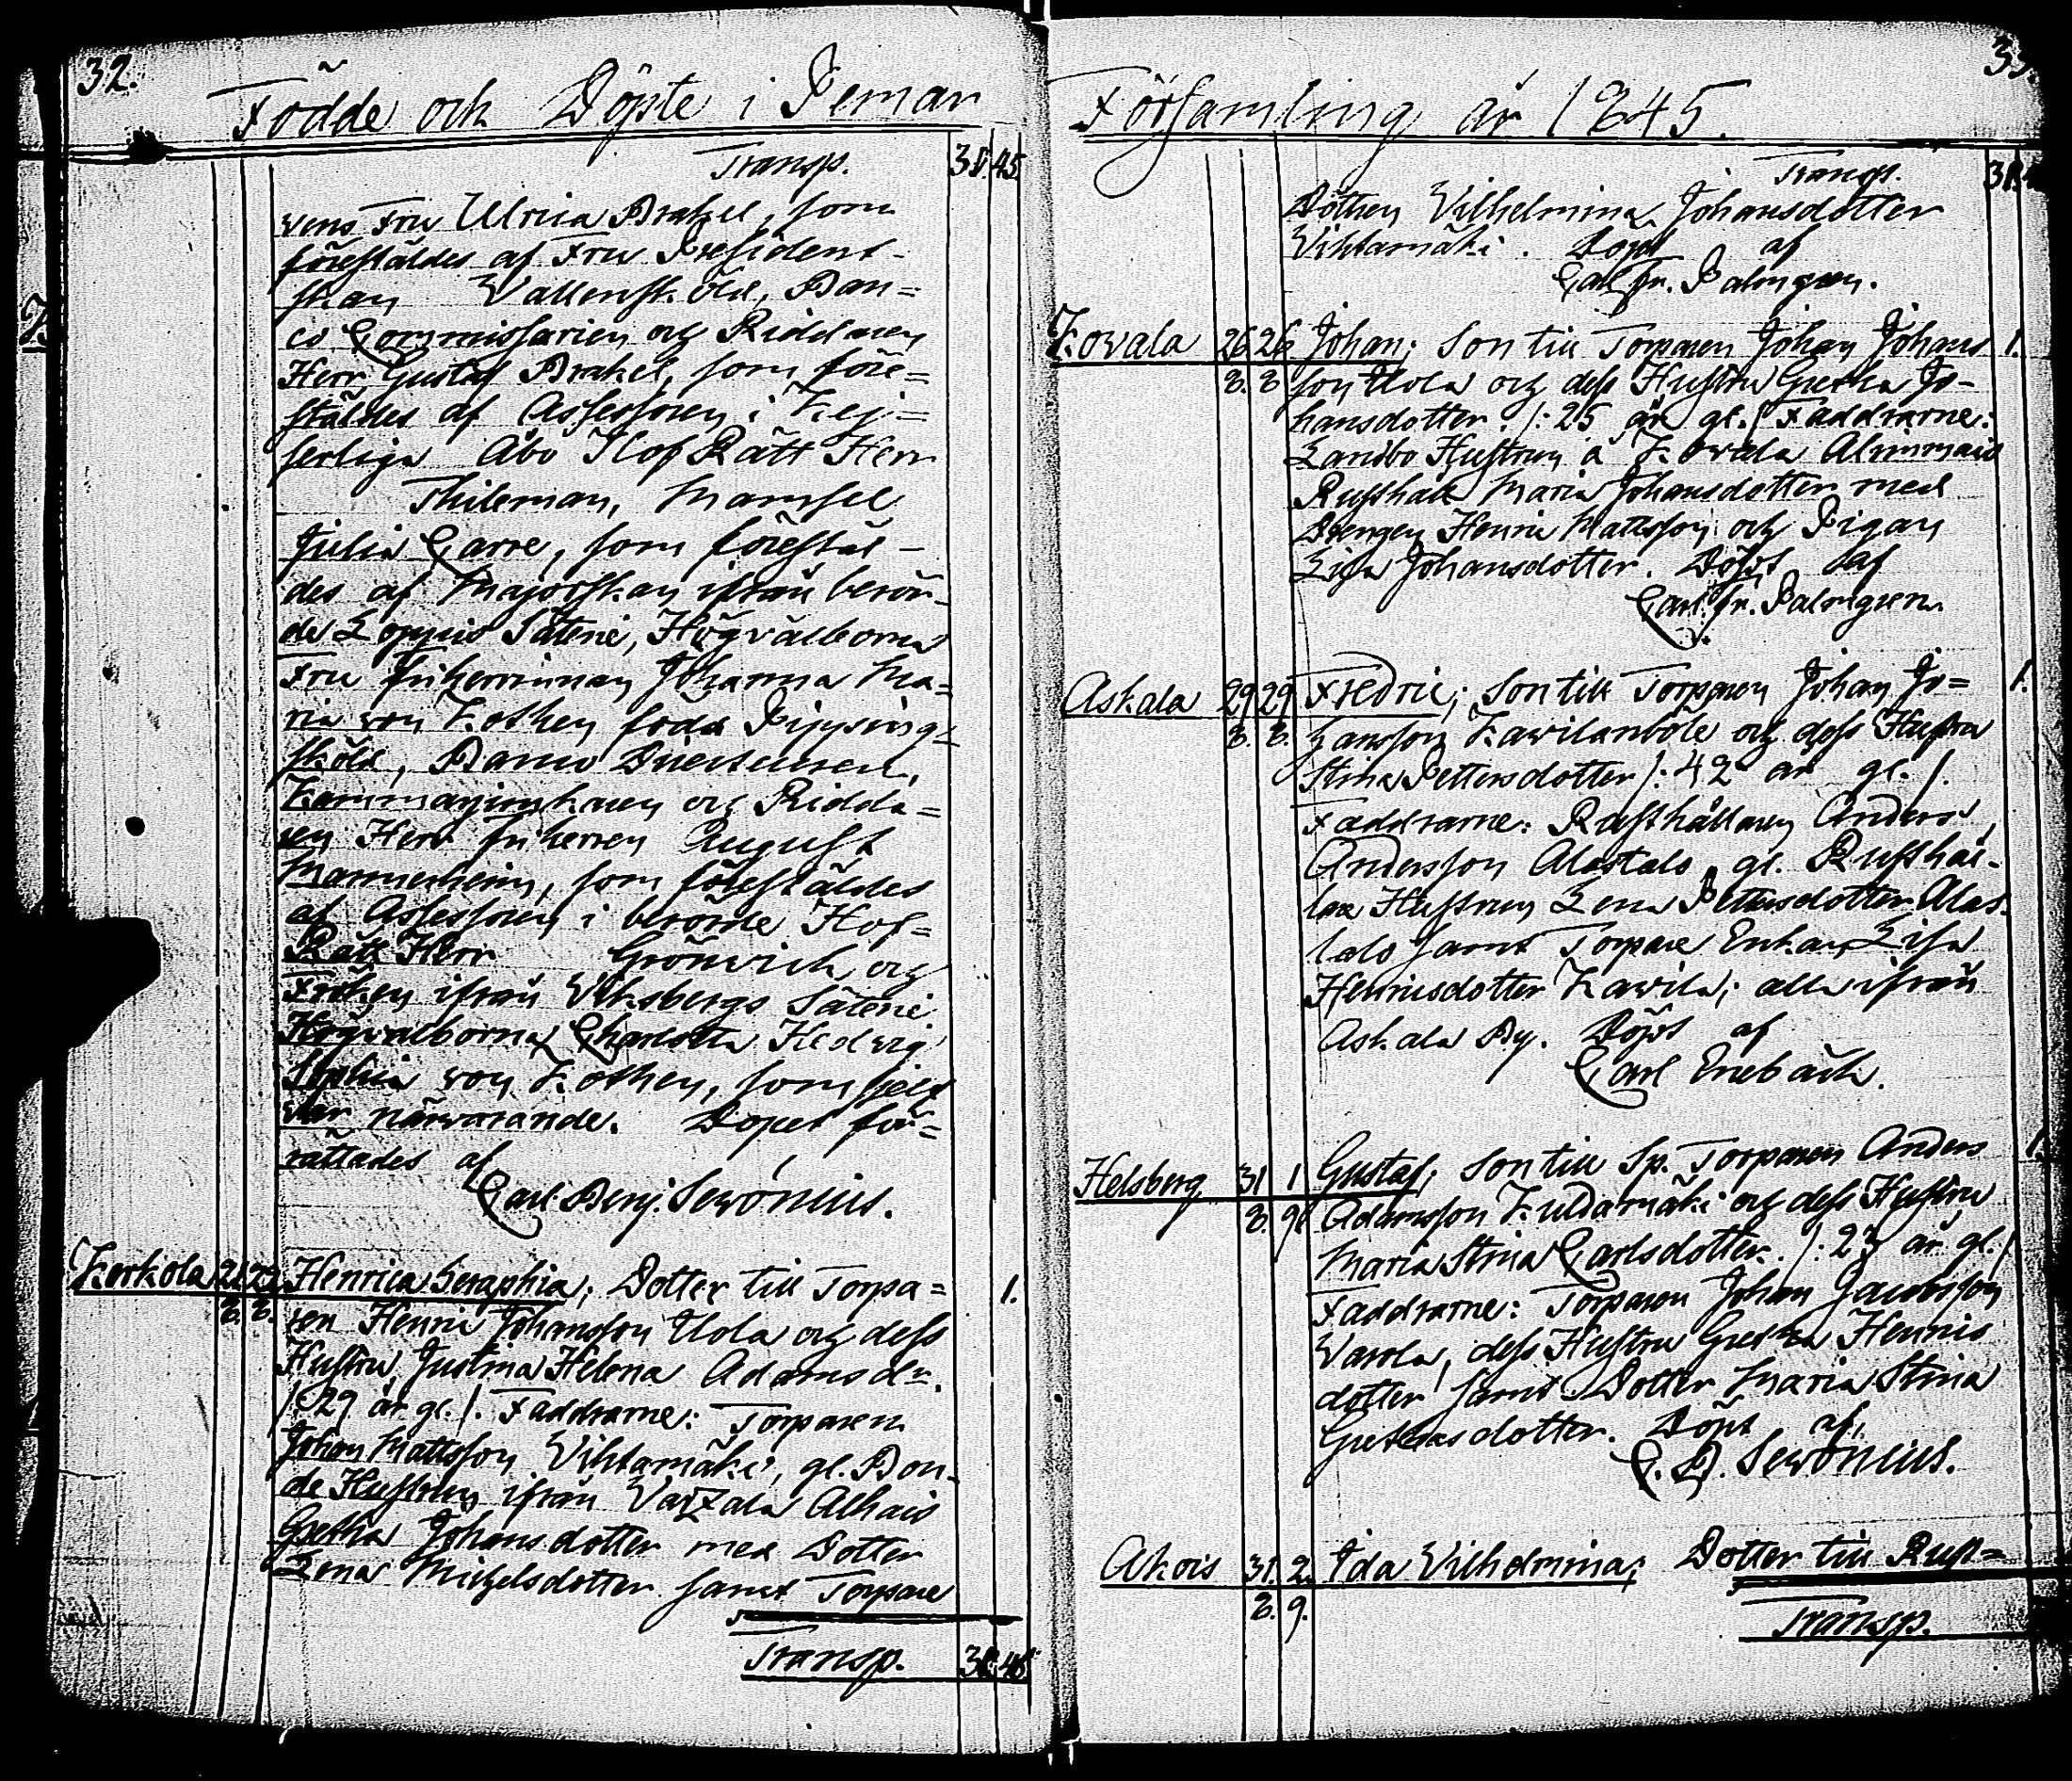 32.
Födde och Döpte i Pemar
Transp. 38. 45.
vens Fru Ulrica Brakel, som
föreställdes af Fru President-
skan Wallensköld, Ban=
co Commissarien och Riddaren
Herr Gustaf Brakel, som före=
ställdes af Assessoren i Kej=
serliga Åbo Hof Rätt Herr
Thileman, Mamsel
Julia Carre, som föreställ-
des af Majorskan ifrån berör-
de Loppis Säterie, Högvälborna
Fru Friherrinnan Johanna Ma=
ria von Kothen född Pipping=
sköld, Banco Directeuren,
Kammarjunkaren och Ridda=
ren Herr Friherren August
Mannerheim, som föreställdes
af Assessoren i berörde Hof=
Rätt Herr Grönvick och
Fröken ifrån Viksbergs Säterie
Högvälborna Charlotta Hedvig
Sophia von Kothen, som sjelf
var närvarande. Dopet för=
rättades af
Carl Benj. Sewonius.
Kerkola 21 8. 8. Henrica Seraphia; Dotter till Torpa= 1.
ren Henric Johansson Uola och dess
Hustru Justina Helena Adamsdr.
/: 29 år gl. /. Faddrarne: Torparen
Johan Mattsson Vihtamäki, gl. Bon-
de Hustrun ifrån Alhais
Gretha Johansdotter med Dotter
Lena Michelsdotter samt Torpare
Transp. 38. 46.
Församling år 1845.
Transp. 38.
Dottren Vilhelmina Johansdotter
Vihtamäki. Döpt af
Carl Fr. Palmgren.
Kovala 26 26 Johan; Son till Torparen Johan Johans 1.
8. 8. son Uola och dess Hustru Gretha Jo-
hansdotter. /: 25 år gl. / Faddrarne:
Landbo Hustrun å Kovala Alimmais
Rusthåll Maria Johansdotter med
Drengen Henric Mattsson och Pigan
Lisa Johansdotter. Döpt af
Carl Fr. Palmgren.
Askala 29 29 Fredric; Son till Torparen Johan Jo= 1.
8. 8. hansson Kavilanböle och dess Hustru
Stina Pettersdotter /: 42 år gl. /.
Faddrarne: Rusthållaren Anders
Andersson Alastalo, gl. Rusthål-
lare Hustrun Lena Pettersdotter Alas-
talo samt Torpare Enkan Lisa
Henricsdotter Kavila; alla ifrån
Askala By. Döpt af
Carl Enebäck.
Helsberg 31 1 Gustaf; Son till Sp. Torparen Anders 1.
8. 9. Adamsson Kuldamäki och dess Hustru
Maria Stina Carlsdotter. /: 23 år gl. /
Faddrarne: Torparen Johan Jacobsson
Varola, dess Hustru Gretha Henrics
dotter samt Dotter Maria Stina
dotter. Döpt af
C. B. Sewonius.
Akois 31. 2. Ida Vilhelmina; Dotter till Rust=
8. 9.
Transp.